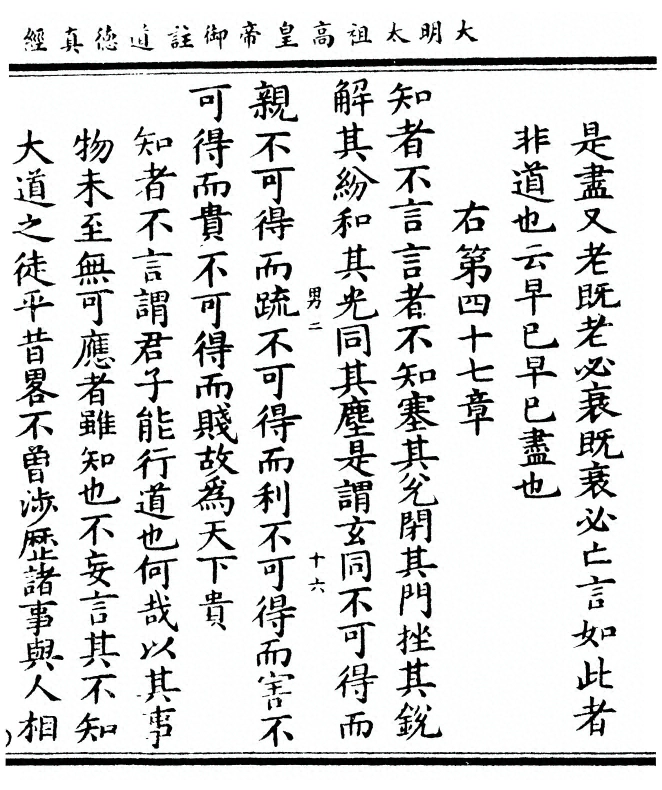 大明太祖高皇帝御註道德真經
是盡又老既老必衰既衰必亡言如此者
非道也云早已早已盡也
右第四十七章
知者不言言者不知塞其兌閉其門挫其銳
解其紛和其光同其塵是謂玄同不可得而
男二
十六
親不可得而疏不可得而利不可得而害不
可得而貴不可得而賤故為天下貴
知者不言謂君子能行道也何哉以其事
物未至無可應者雖知也不妄言其不知
大道之徒平昔畧不曾涉歷諸事與人相